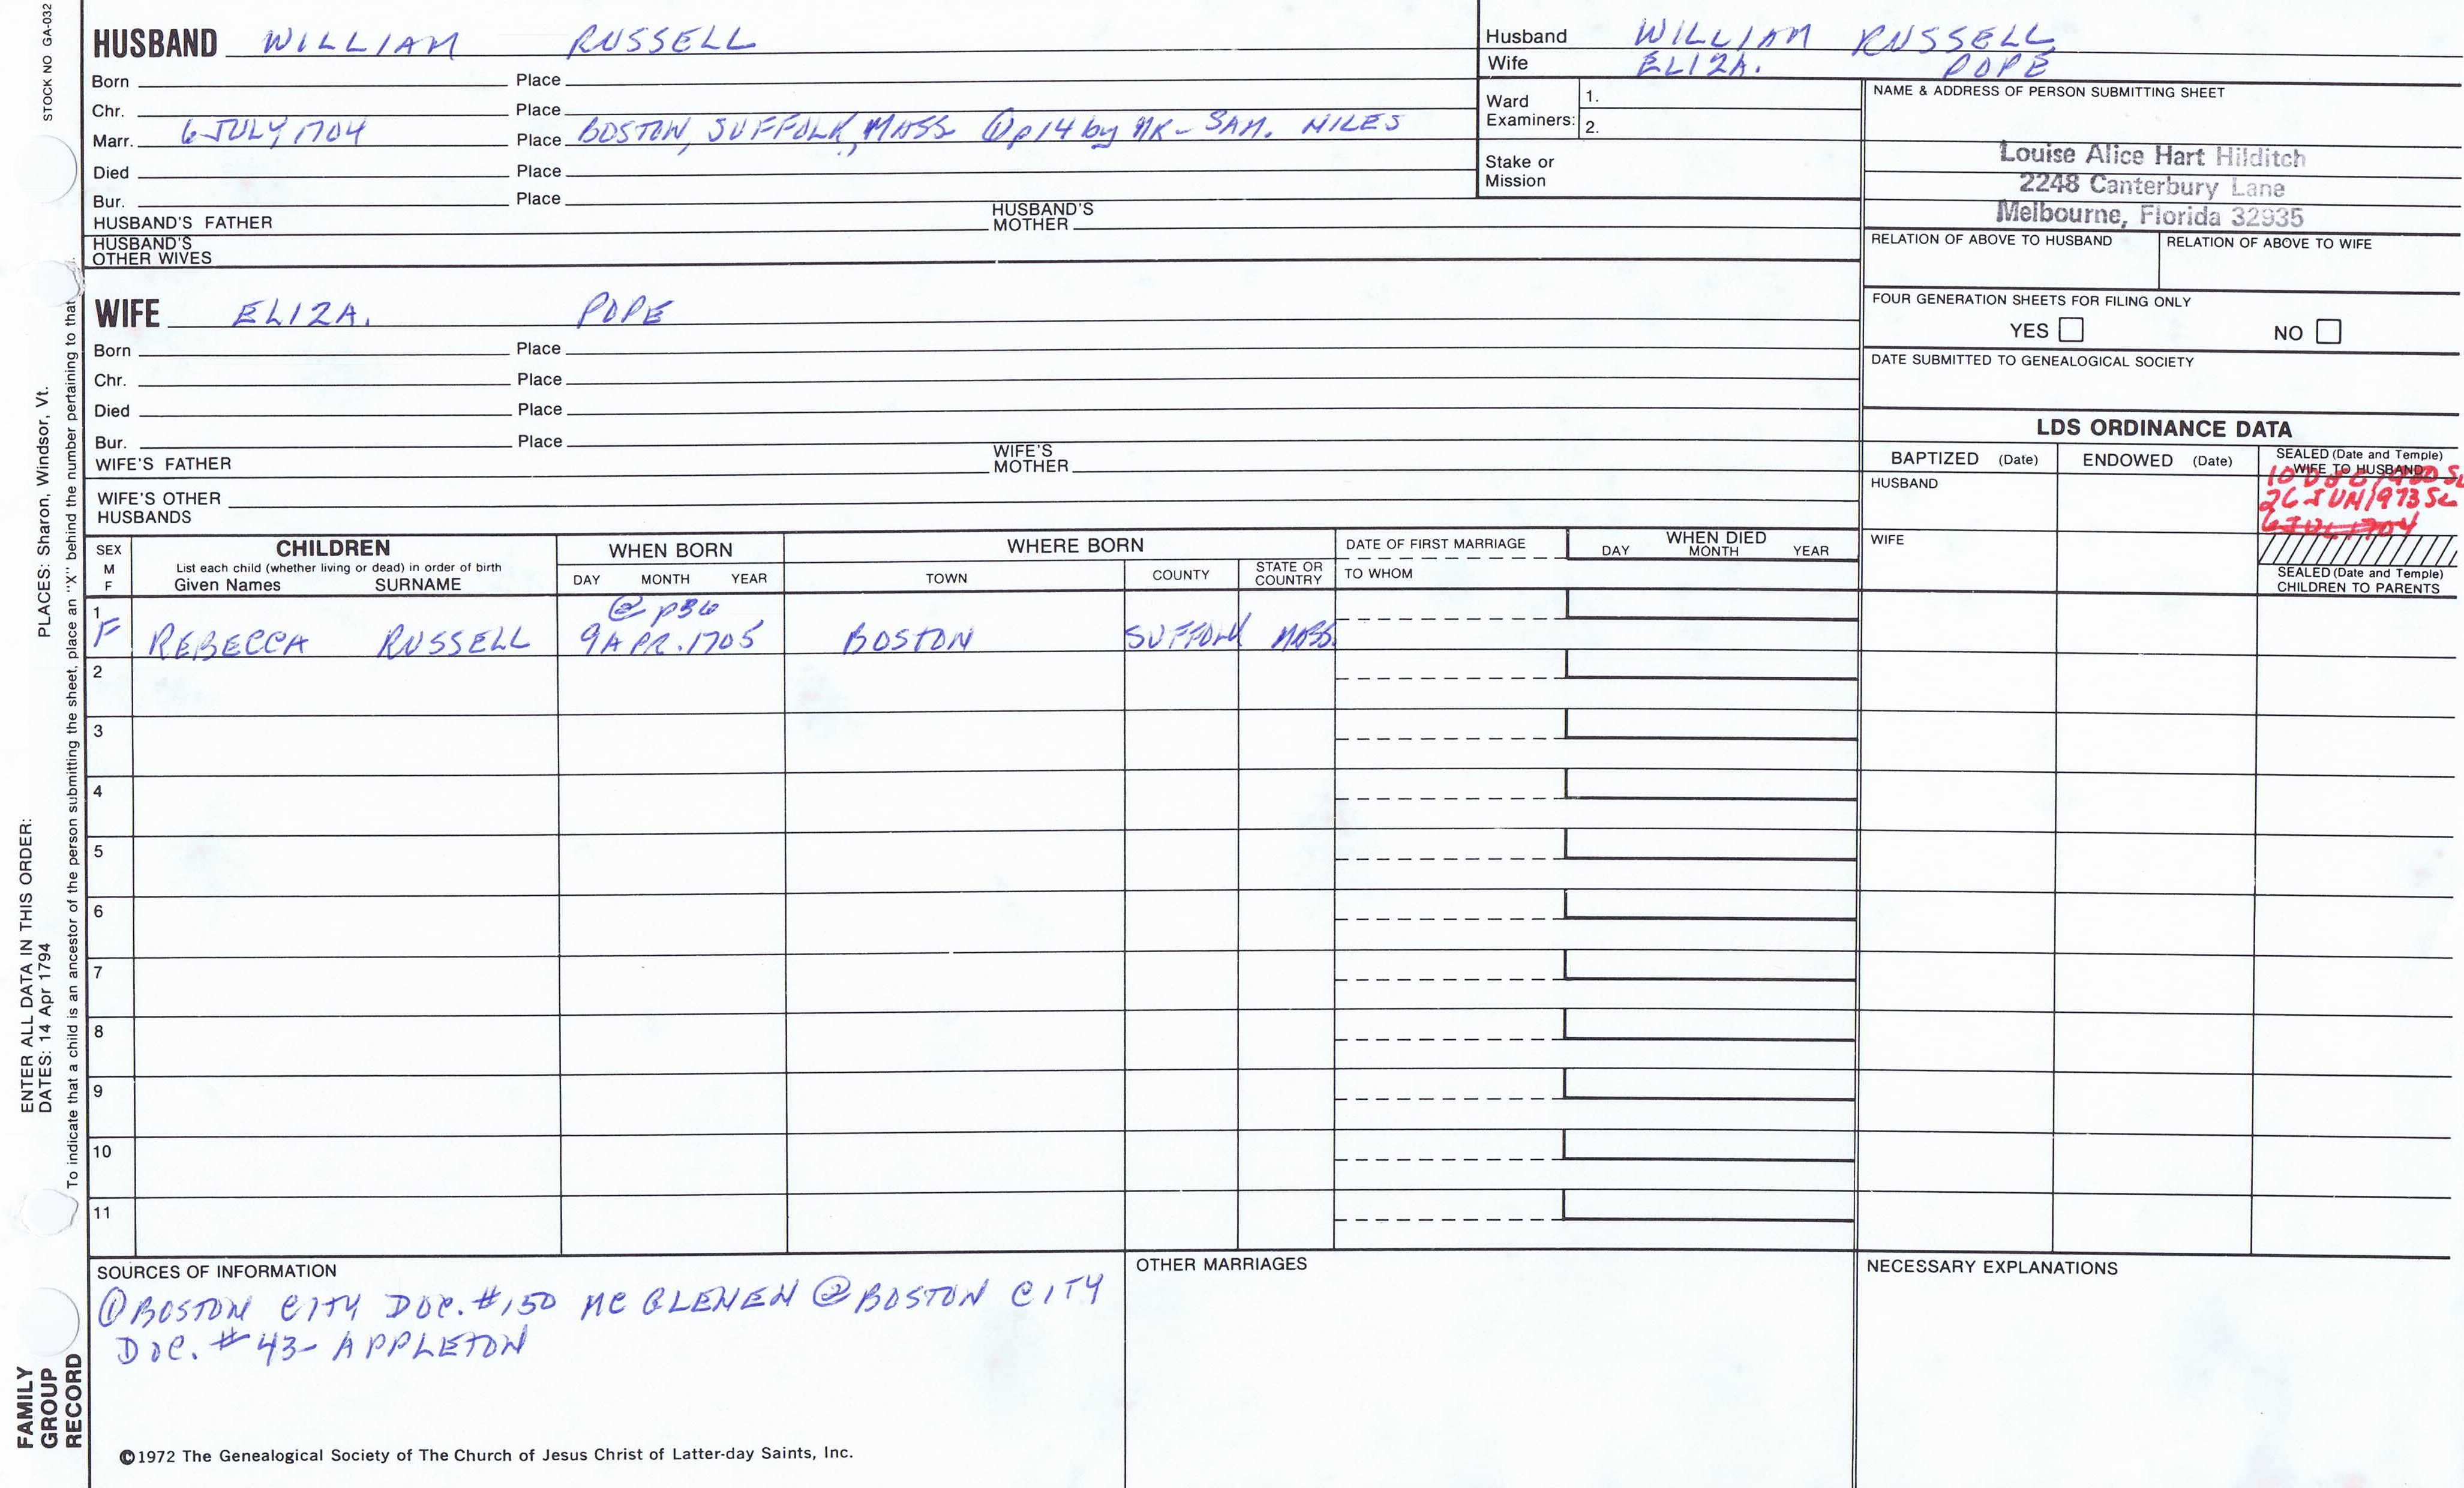 STOCK NO GA-032
HUSBAND WILLIAM RUSSELL
Born Place
Chr. Place
Marr. 6 JULY 1704 Place BOSTON, SUFFOLK, MASS ①p14 by MR- SAM. MILES
Died Place
Bur. Place
HUSBAND'S FATHER HUSBAND'S MOTHER
HUSBAND'S OTHER WIVES
Husband WILLIAM RUSSELL
Wife ELIZA. POPE
Ward Examiners: 1.
2.
Stake or Mission
NAME & ADDRESS OF PERSON SUBMITTING SHEET
Louise Alice Hart Hilditch
2248 Canterbury Lane
Melbourne, Florida 32935
RELATION OF ABOVE TO HUSBAND RELATION OF ABOVE TO WIFE
FOUR GENERATION SHEETS FOR FILING ONLY
YES NO
DATE SUBMITTED TO GENEALOGICAL SOCIETY
WIFE ELIZA. POPE
Born Place
Chr. Place
Died Place
Bur. Place
WIFE'S FATHER WIFE'S MOTHER
WIFE'S OTHER HUSBANDS
LDS ORDINANCE DATA
BAPTIZED (Date) ENDOWED (Date) SEALED (Date and Temple) WIFE TO HUSBAND
HUSBAND
10 DEC SL
26 JUN 1973 SL
6 JUL 1704
WIFE
SEALED (Date and Temple) CHILDREN TO PARENTS
SEX M F
CHILDREN
List each child (whether living or dead) in order of birth
Given Names SURNAME
WHEN BORN
DAY MONTH YEAR
WHERE BORN
TOWN COUNTY STATE OR COUNTRY
DATE OF FIRST MARRIAGE
TO WHOM
WHEN DIED
DAY MONTH YEAR
② p36
1 F REBECCA RUSSELL 9 APR. 1705 BOSTON SUFFOLK MASS.
2
3
4
5
6
7
8
9
10
11
SOURCES OF INFORMATION
① BOSTON CITY DOC. #150 MC GLENEN ② BOSTON CITY
DOC. #43- APPLETON
OTHER MARRIAGES
NECESSARY EXPLANATIONS
©1972 The Genealogical Society of The Church of Jesus Christ of Latter-day Saints, Inc.
FAMILY GROUP RECORD
ENTER ALL DATA IN THIS ORDER:
DATES: 14 Apr 1794 PLACES: Sharon, Windsor, Vt.
To indicate that a child is an ancestor of the person submitting the sheet, place an "X" behind the number pertaining to that